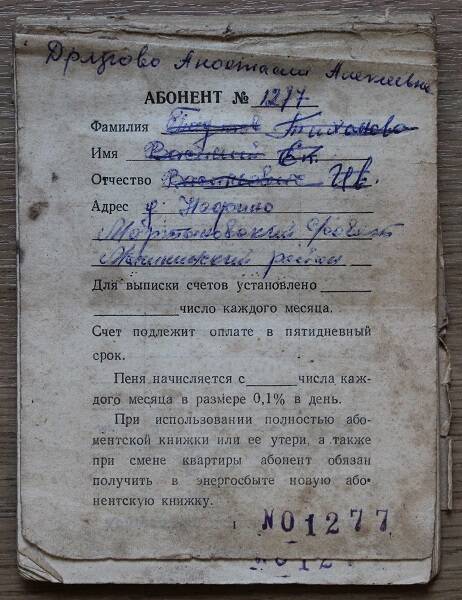 Анастасия Алексеевна
АБОНЕНТ № 1277
Фамилия Тихонова
Имя Ек.
Отчество Ив.
Адрес д.
район
Для выписки счетов установлено
число каждого месяца.
Счет подлежит оплате в пятидневный
срок.
Пеня начисляется с ______ числа каж-
дого месяца в размере 0,1% в день.
При использовании полностью або-
ментской книжки или ее утери, а также
при смене квартиры абонент обязан
получить в энергосбыте новую або-
нентскую книжку.
1
№01277